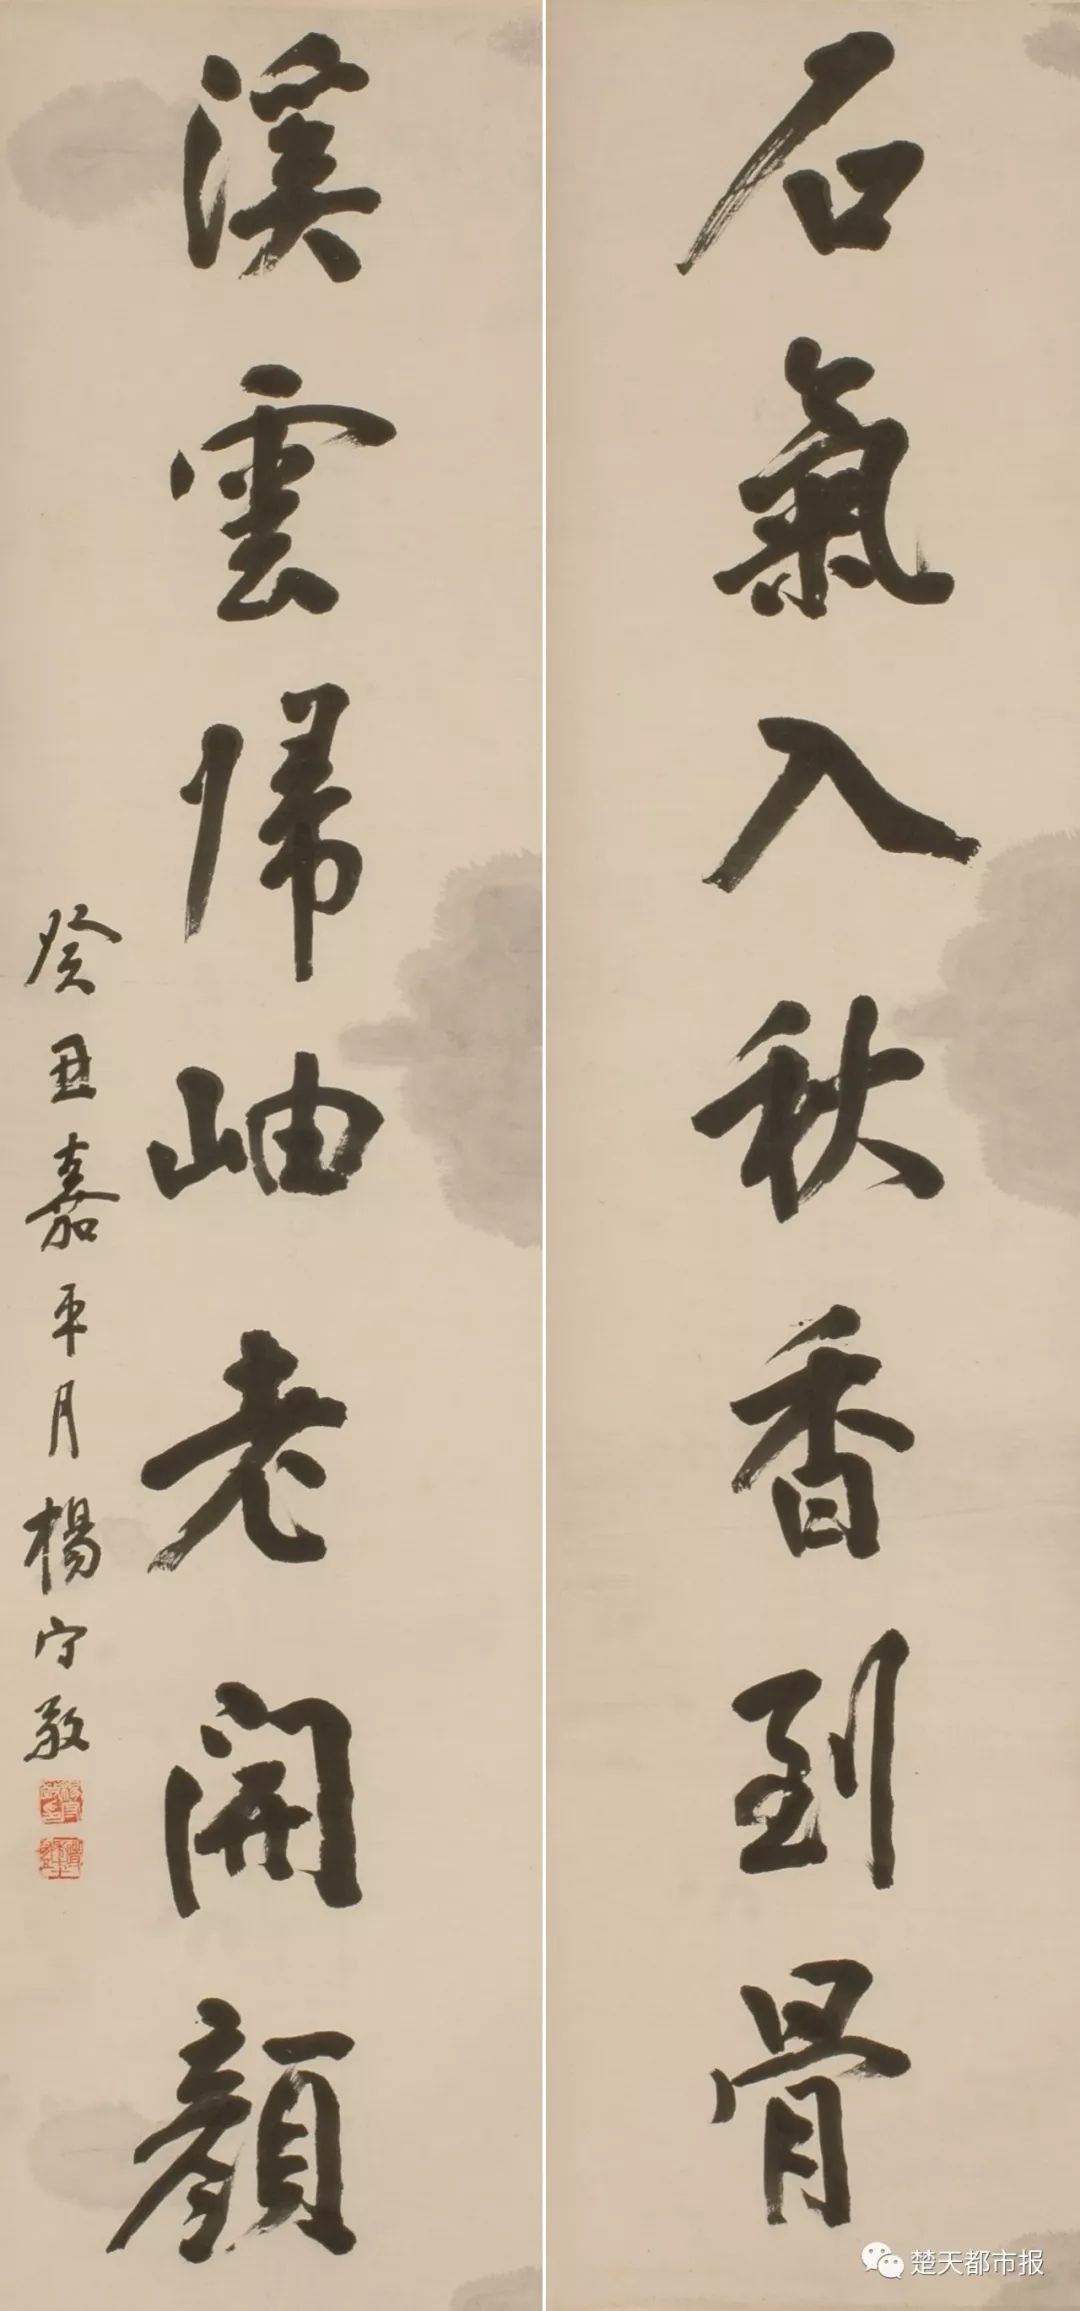 石氣入秋香到骨
溪雲歸岫老開顏
癸丑嘉平月楊守敬
楚天都市报